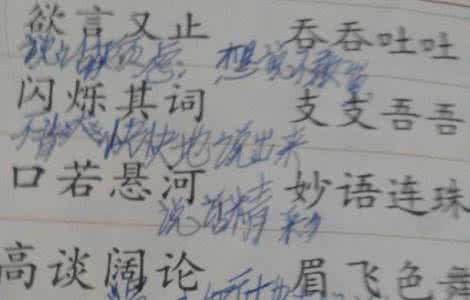 欲言又止 吞吞吐吐
想说不敢说
闪烁其词 支支吾吾
快快地说出来
口若悬河 妙语连珠
说话精彩
高谈阔论 眉飞色舞